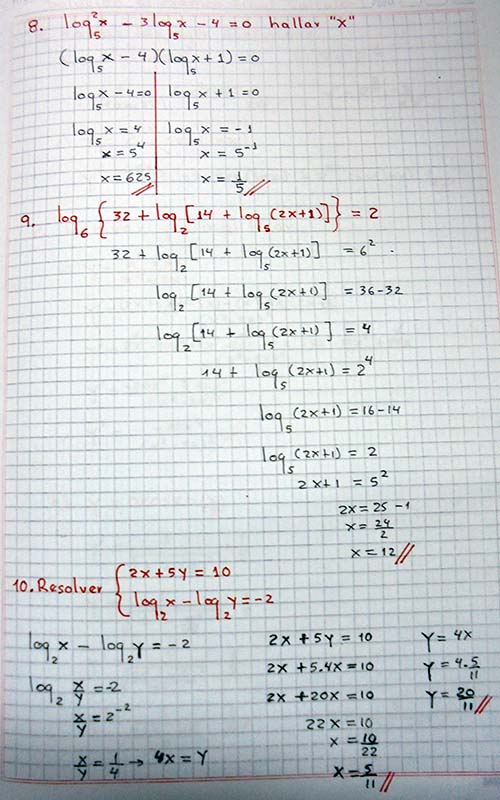 8. log₅²x - 3log₅x - 4 = 0 hallar "x"
(log₅x - 4)(log₅x + 1) = 0
log₅x - 4 = 0 log₅x + 1 = 0
log₅x = 4 log₅x = -1
x = 5⁴ x = 5⁻¹
x = 625 x = 1/5
9. log₆{32 + log₂[14 + log₅(2x+1)]} = 2
32 + log₂[14 + log₅(2x+1)] = 6²
log₂[14 + log₅(2x+1)] = 36-32
log₂[14 + log₅(2x+1)] = 4
14 + log₅(2x+1) = 2⁴
log₅(2x+1) = 16-14
log₅(2x+1) = 2
2x+1 = 5²
2x = 25 - 1
x = 24/2
x = 12
10. Resolver { 2x + 5y = 10
log₂x - log₂y = -2
log₂x - log₂y = -2 2x + 5y = 10 y = 4x
log₂ x/y = -2 2x + 5.4x = 10 y = 4.5/11
x/y = 2⁻² 2x + 20x = 10 y = 20/11
x/y = 1/4 → 4x = y 22x = 10
x = 10/22
x = 5/11